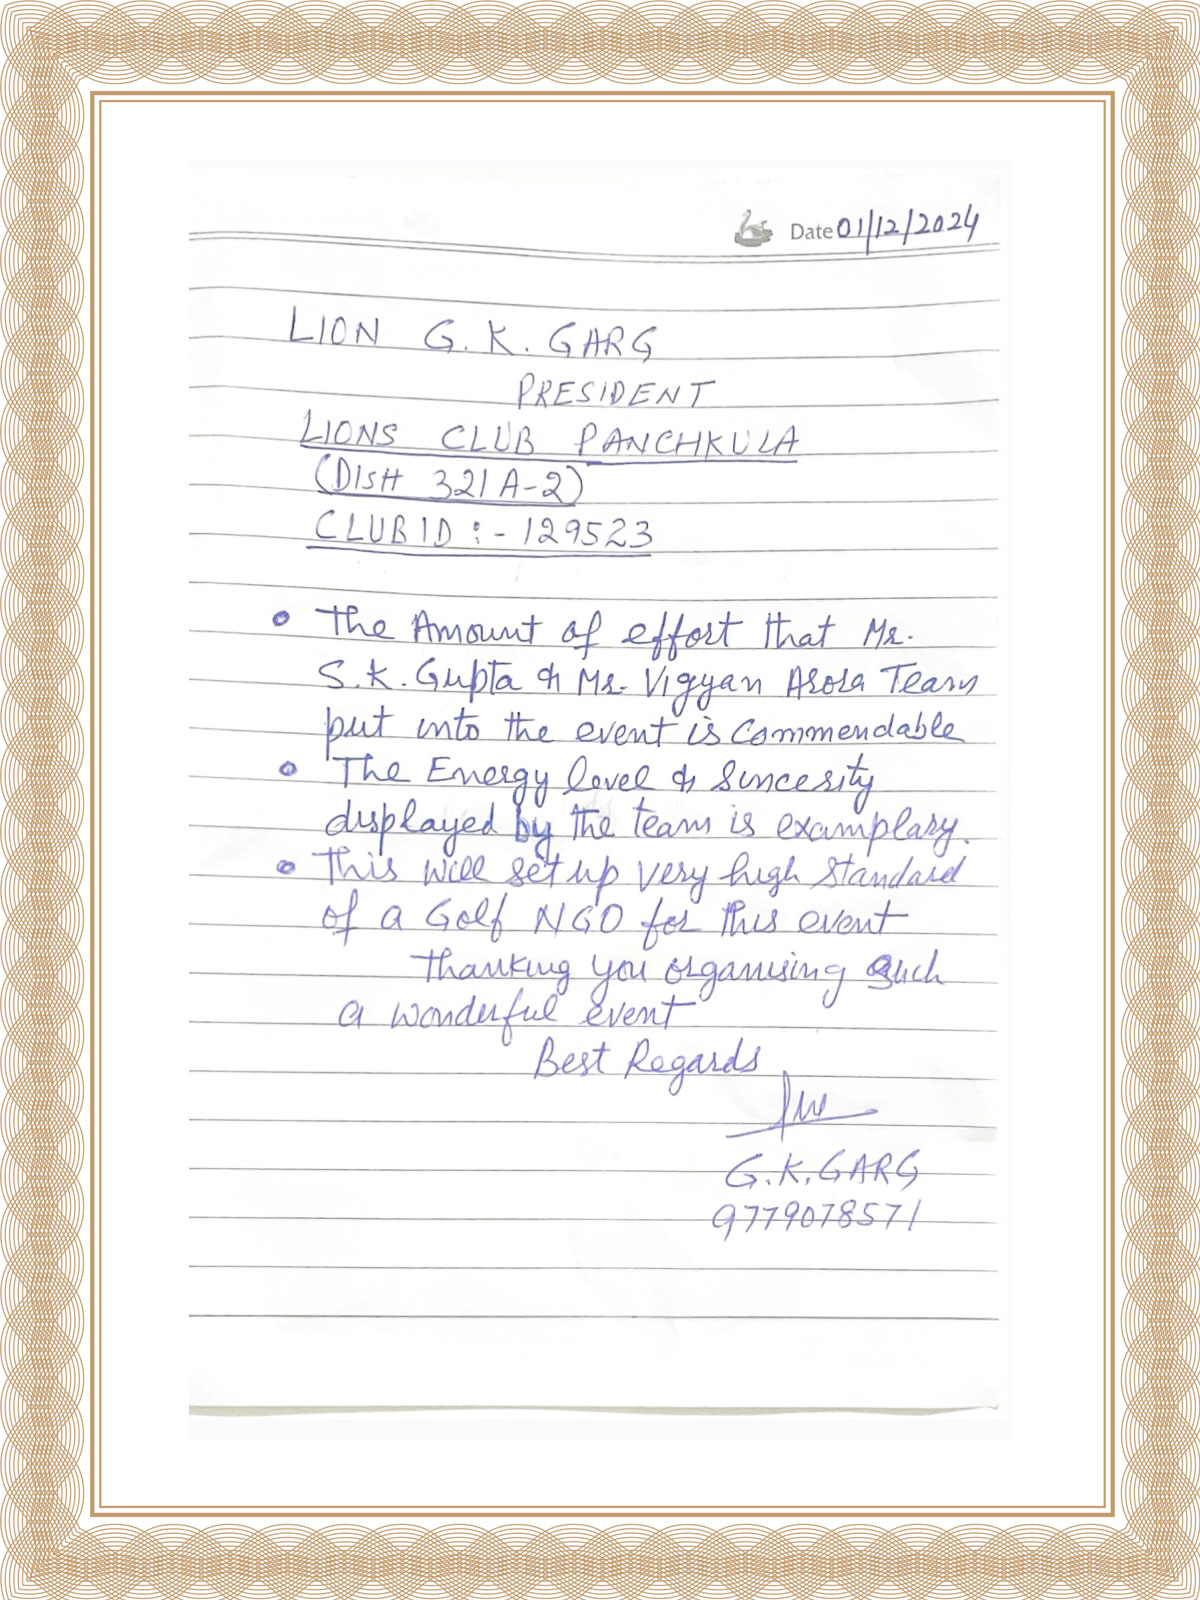 Date 01/12/2024
LION G. K. GARG
PRESIDENT
LIONS CLUB PANCHKULA
(DISH 321A-2)
CLUB ID :- 129523
• The Amount of effort that Mr.
S.K. Gupta & Mr. Vigyan Arora Team
put into the event is Commendable
• The Energy level & Sincerity
displayed by the team is examplary.
• This will set up very high Standard
of a Golf NGO for this event
thanking you organising such
a wonderful event
Best Regards
G.K. GARG
9779078571